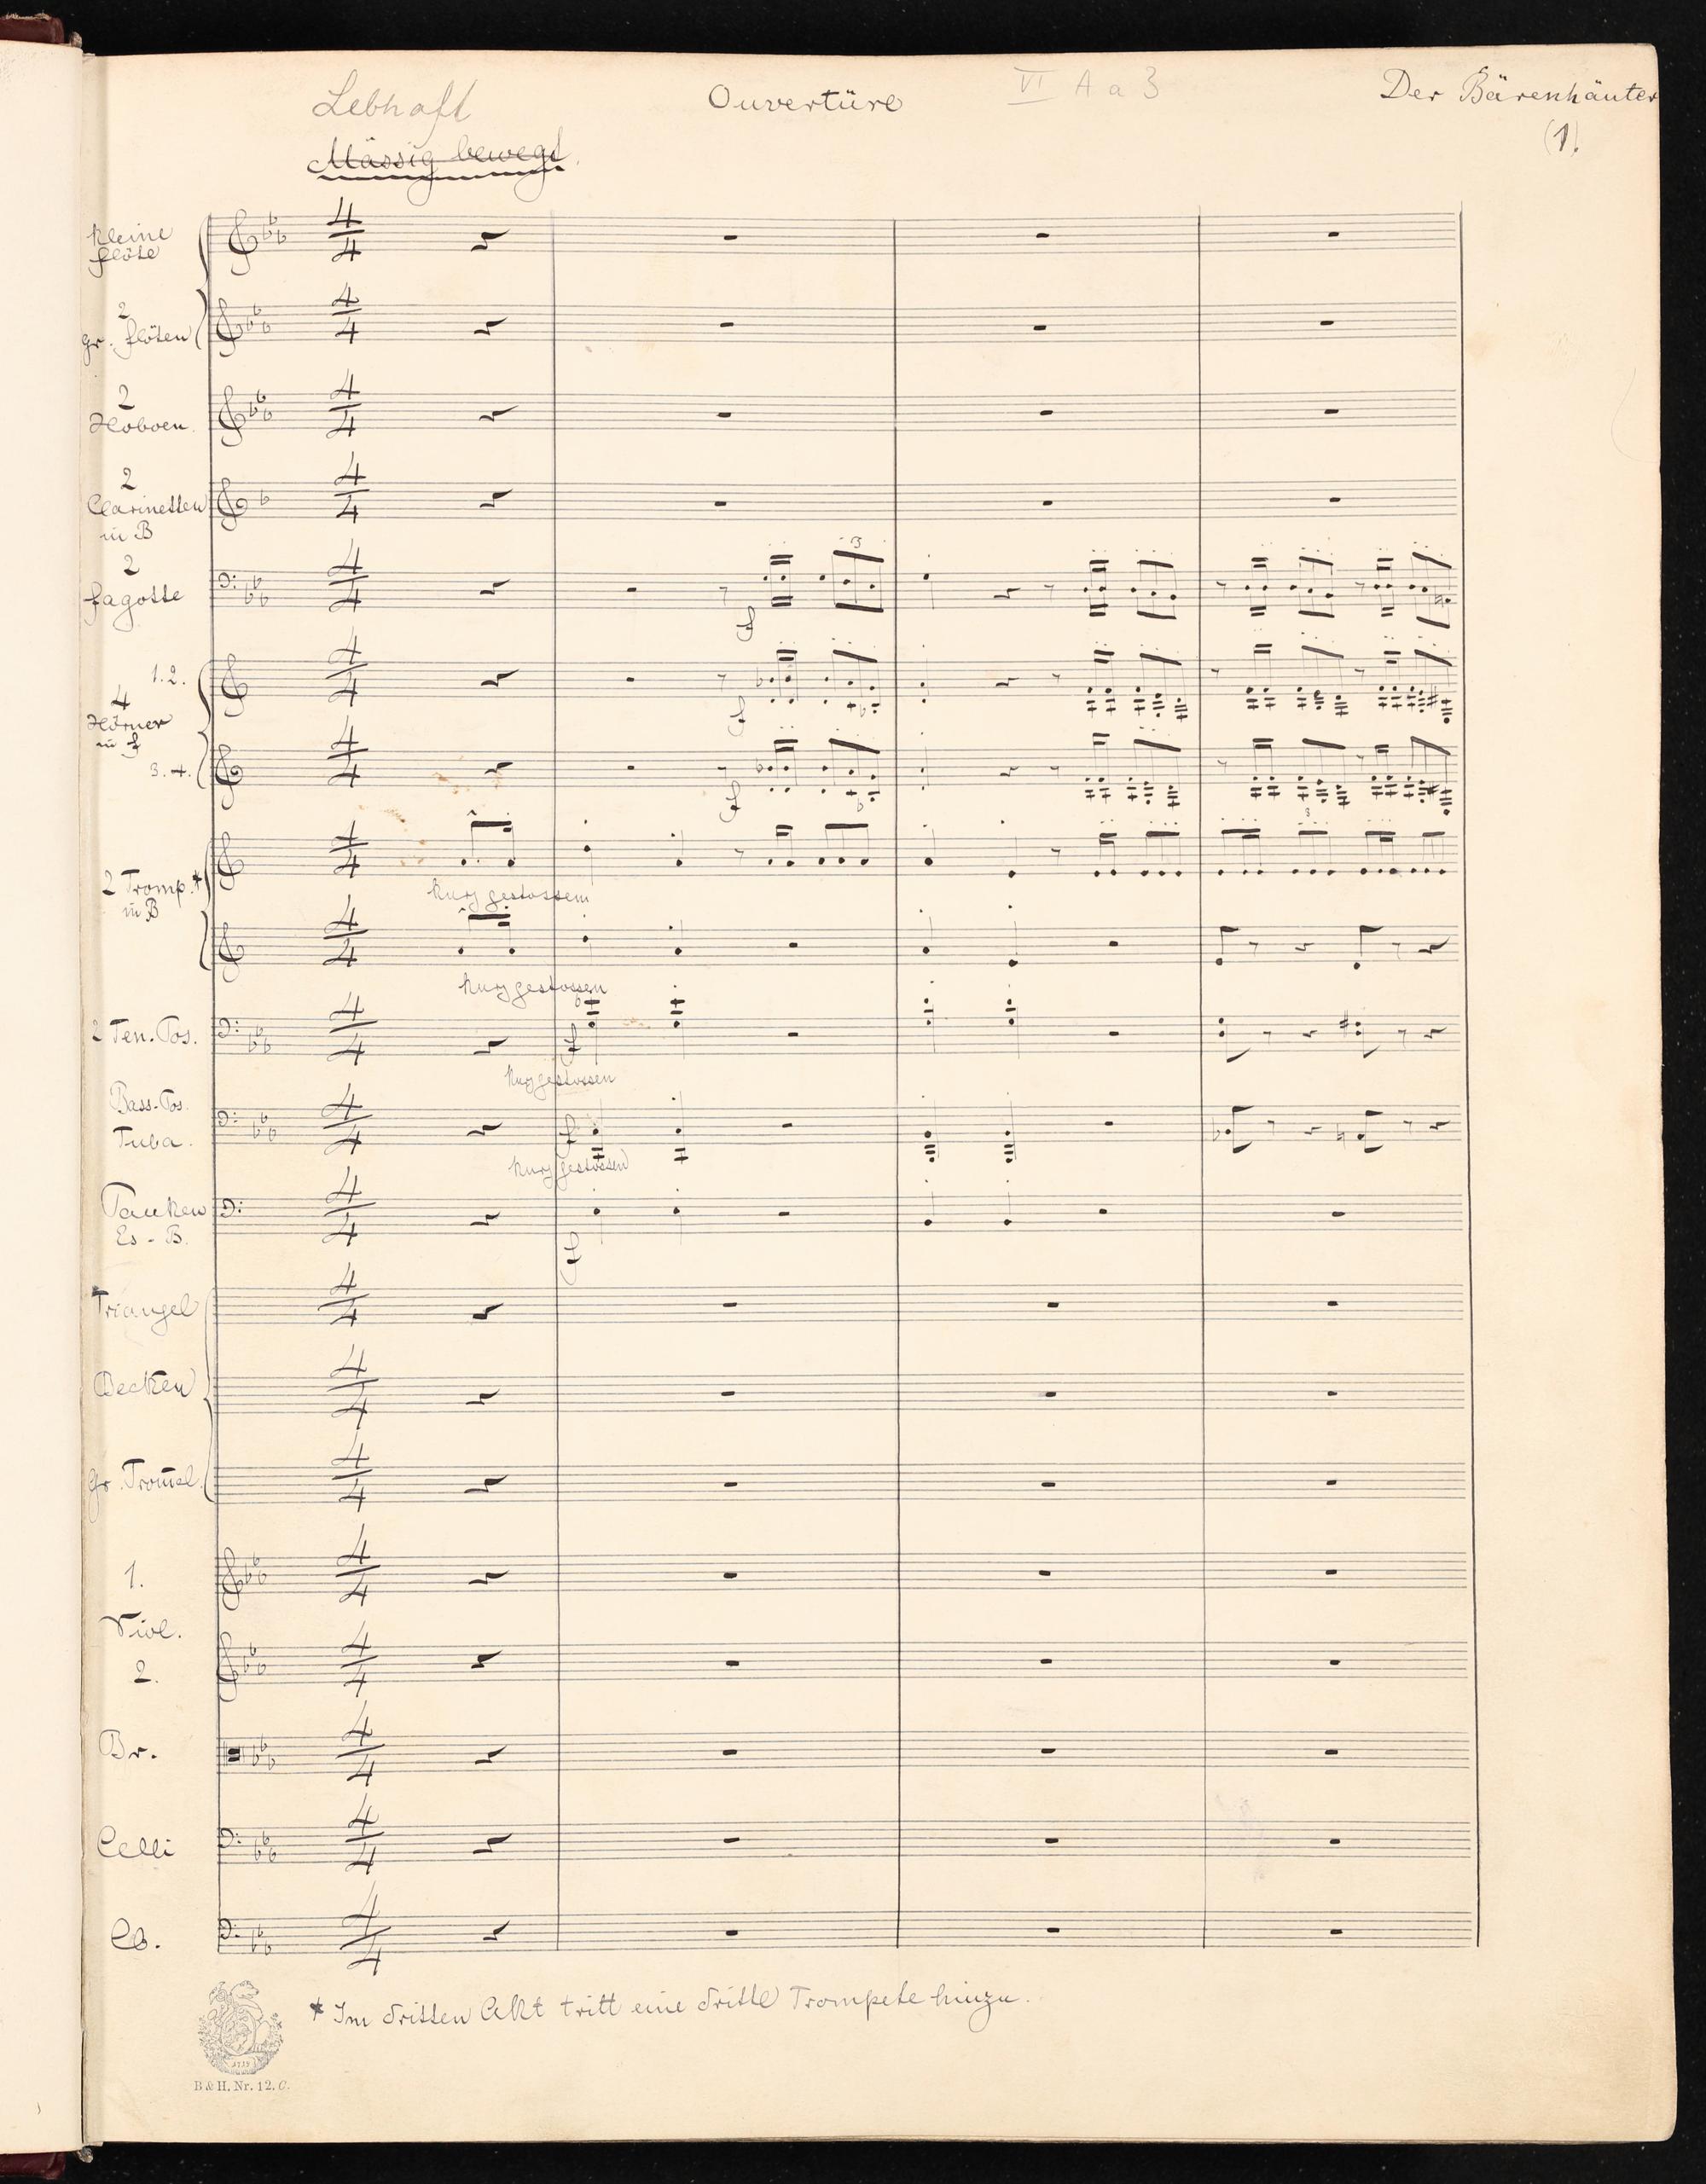 VI A a 3
Der Bärenhäuter
Lebhaft
Ouvertüre
(1)
Mässig bewegt.
Kleine
Flöte
2
gr. Flöten
2
Hoboen
2
Clarinetten
in B
2
Fagotte
3
f
1. 2.
4
Hörner
in F
3. 4.
f
f
2 Tromp. *
in B
3
kurz gestossen
kurz gestossen
2 Ten. Pos.
f
kurz gestossen
Bass-Pos.
Tuba.
f
kurz gestossen
Pauken
Es - B.
f
Triangel
Becken
Gr. Trom̄el.
1.
Viol.
2.
Br.
Celli
Cb.
* Im dritten Akt tritt eine dritte Trompete hinzu.
1719
B & H. Nr. 12. C.